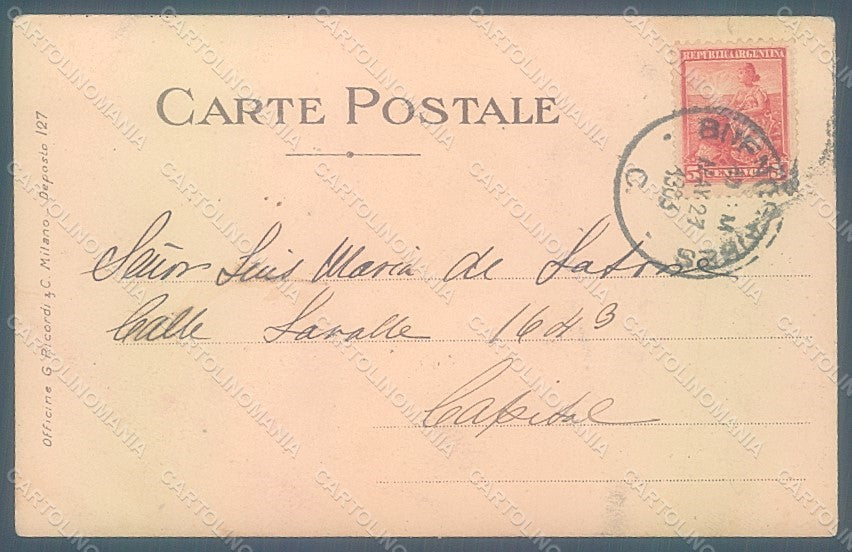 CARTE POSTALE
REPUBLICA ARGENTINA
5 CENTAVOS 5
BUENOS AIRES
MAY 27
1903
C.
Señor Luis Maria de
Calle Lavalle 1643
Capital
Officine G. Ricordi & C. Milano - Deposto 127
CARTOLINOMANIA